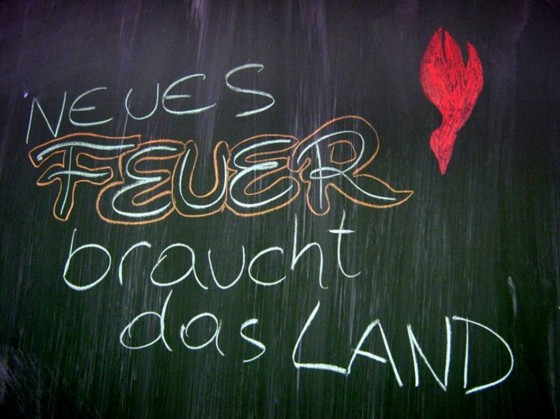 NEUES
FEUER
braucht
das LAND